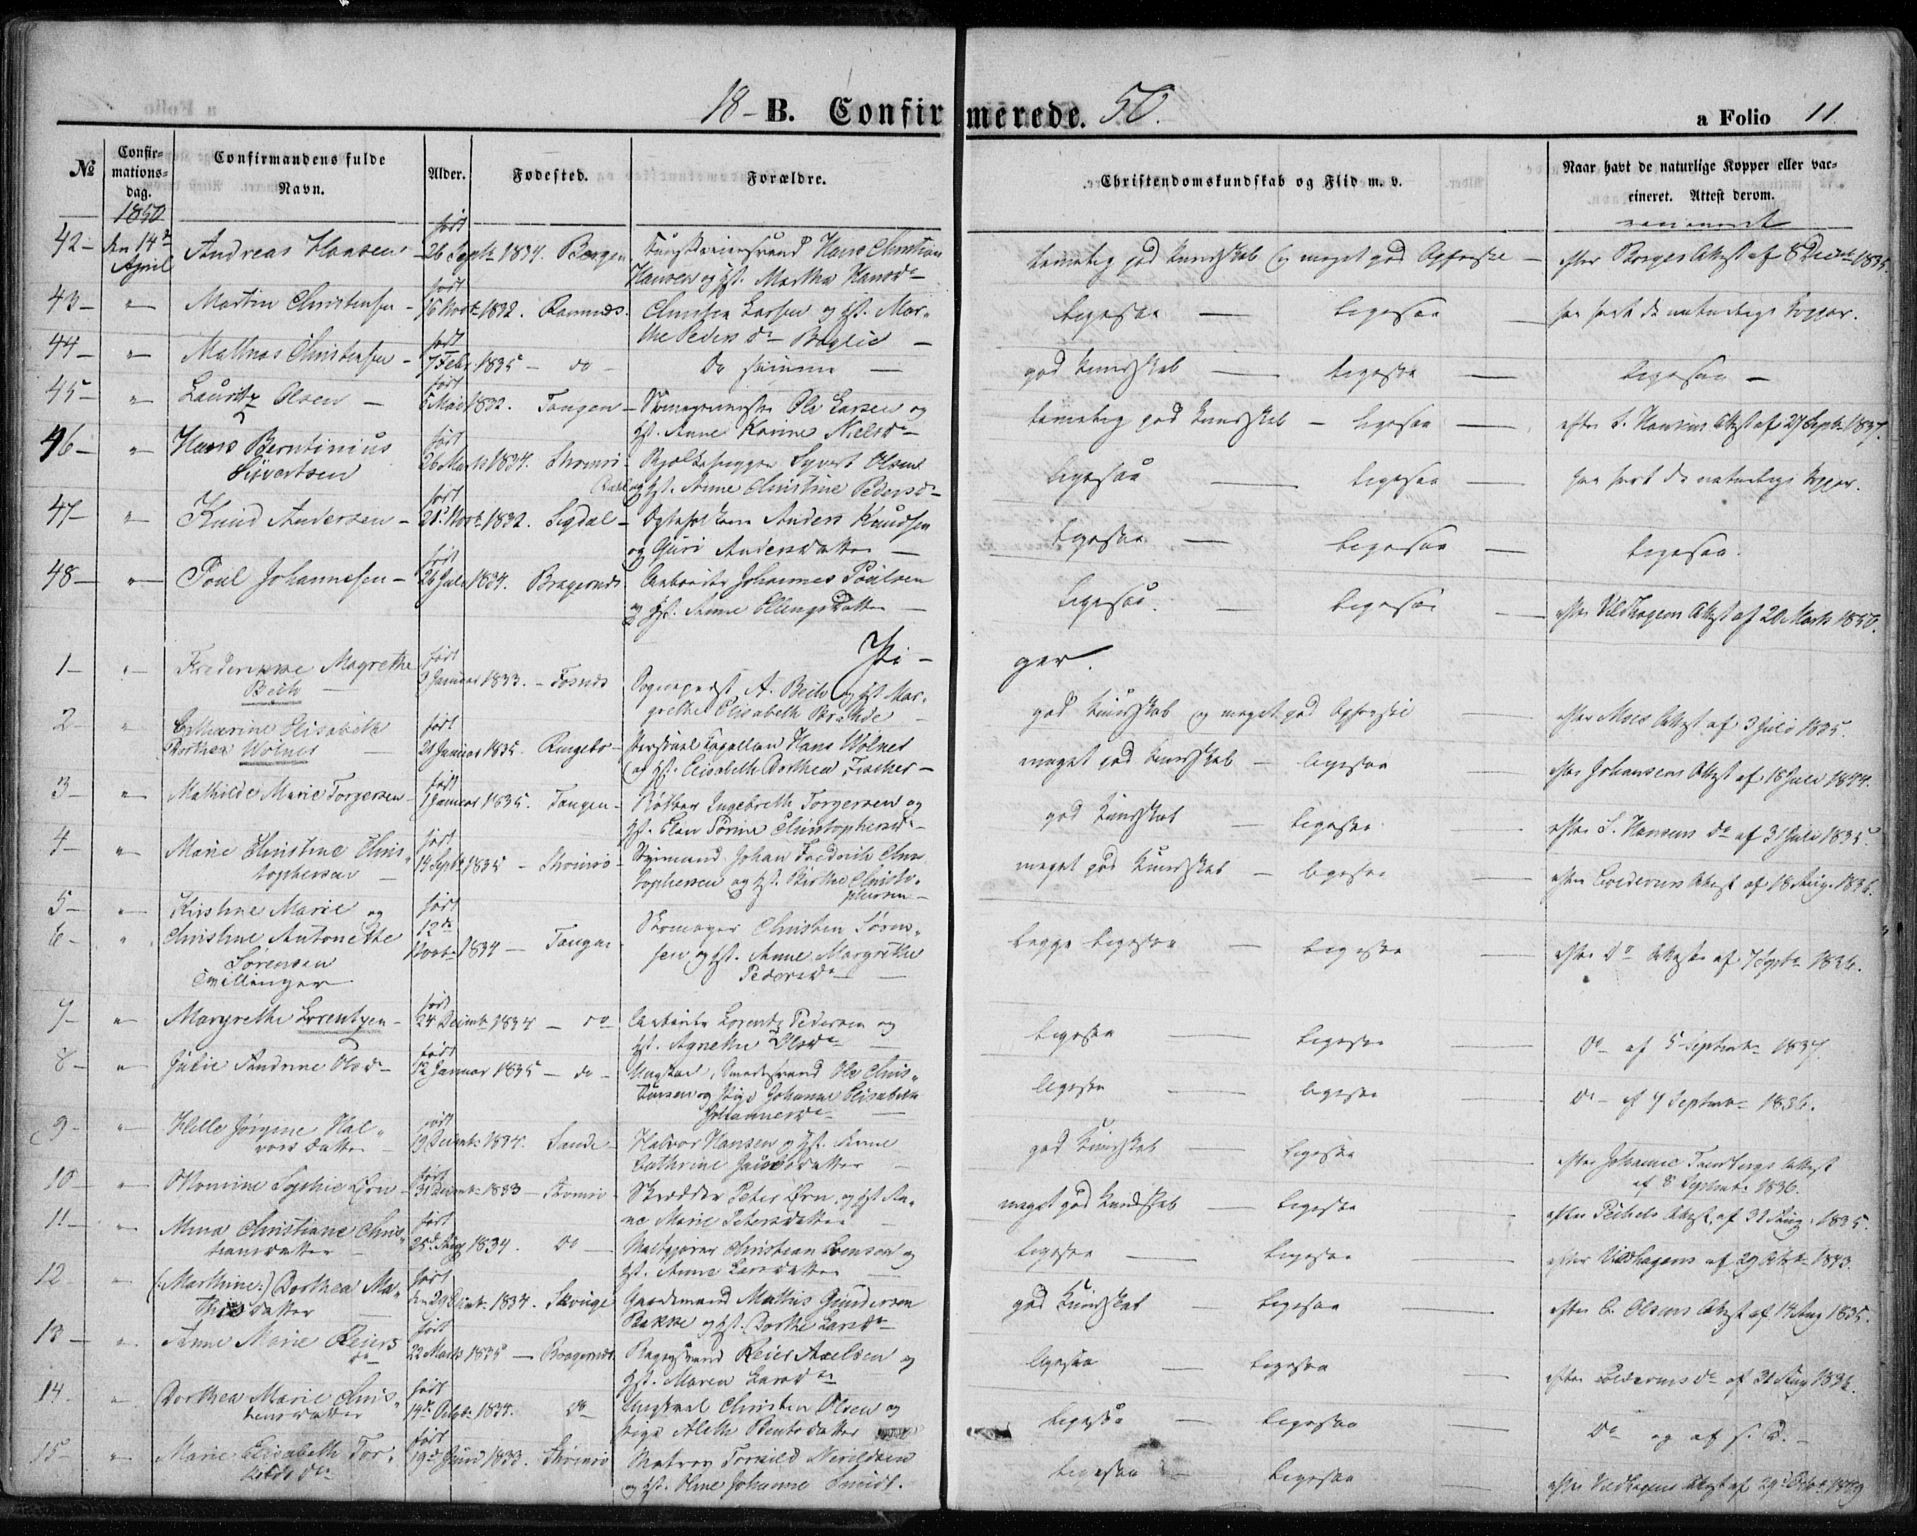 18- B. Confirmerede. 50. a Folio 11
№ Confirmationsdag. Confirmandens fulde Navn. Alder. Fødested. Forældre. Christendomskundskab og Flid m. v. Naar havt de naturlige Kopper eller vaccineret. Attest derom.
1850 vaccineret
42 - den 14de April Andreas Hansen - født 26 Septr 1834. Bergen Hans Christian
Hansen og Hst. Martha Hansdr - temelig god Kundskab og meget god Opførsel - efter Attest af 8 1835.
43 - " Martin Christensen - født 16 Novbr 1832. Ramnæs. Larsen og Hst. Mar-
the Pedersdr - ligesaa - ligesaa - har havt de naturlige Kopper.
44 - " Mathias Christensen - født 7 Febr 1835 - do - De samme - god Kundskab - ligesaa - ligesaa -
45 - " Lauritz Olsen - født 5 Mai 1832. Tangen - Skomagermester Ole Larsen og
Hst. Anne Karine Nielsdr - temelig god Kundskab - ligesaa - efter S. Hansens Attest af 27 Septr 1837.
46 - " Hans Berntinius
Sivertsen født 26 Marts 1834. Strømsø - Sivert Olsen
og Hst. Anne Christine Pedersdr - ligesaa - ligesaa - har havt de naturlige Kopper.
47 - " Knud Andersen - født 21de Novbr 1832. Sigdal - Anders Knudsen
og Guri Andersdatter - ligesaa - ligesaa - ligesaa.
48 - " Poul Johannesen - født 26 Juli 1834. Bragernæs Arbeider Johannes Poulsen
og Hst. Anne Ellingsdatter - ligesaa. - ligesaa - efter Vildhagens Attest af 20 Marts 1850.
Pi - ger.
1 - " Frederikke Magrethe
Bech - født 3 Januar 1833. - Fosnæs Sogneprest A. Bech og Hst Mar-
grethe Elisabeth - god Kundskab og meget god Opførsel - efter Moes Attest af 3 Juli 1835.
2 - " Catharine Elisabeth
Dorthea Wølner - født 28 Januar 1835. Ringebo - Personel Capellan Hans Wølner
og Hst. Elisabeth Dorthea Fischer - meget god Kundskab - ligesaa - efter Johansens Attest af 18 Juli 1844.
3 - " Mathilde Marie Torgersen - født 1 Januar 1835. Tangen - Ingebreth Torgersen og
Hst. Elen Torine Christophersdr - god Kundskab - ligesaa - efter S. Hansens do af 31 Juli 1835.
4 - " Marie Christine Chris-
tophersen - født 14 Septr 1835 - Strømsø - Styrmand Johan Frederik Chris-
tophersen og Hst. Christo-
phersen - meget god Kundskab - ligesaa - efter Attest af 18 Aug. 1836.
5 - " Kirstine Marie og
6 - " Christine Antonette
Sørensen
Tvillinger født 12te Novbr 1834 - Tangen - Skomager Christen Søren-
sen og Hst. Anne Margrethe
Pedersdr - begge ligesaa - ligesaa - efter do Attest af 7 Septr 1836.
7 - " Margrethe Lorentzen - født 24 Decembr 1834 - do Arbeider Lorentz Pedersen og
Hst. Agnethe Olsdr - ligesaa - ligesaa - do af 5 Septembr 1837.
8 - " Julie Andrine Olsdr - født 12 Januar 1835 - do - Ungkarl, Ole Chris-
og Pige Johanne Elisabeth
Johannesdr - ligesaa - ligesaa - do af 7 Septembr 1836.
9 - " Helle Jørgine Hal-
vorsdatter - født 19 Decembr 1834. Sande - Halvor Hansen og Hst. Anne
Cathrine - god Kundskab - ligesaa - efter Attest
af 8 Septembr 1836.
10 - " Sophie Ørn - født 31 Decembr 1833 - Strømsø - Skrædder Peter Ørn, og Hst An-
ne Marie Petersdatter - meget god Kundskab - ligesaa - efter Attest, af 31 Aug. 1835.
11 - " Mina Christiane Chris-
tiansdatter - født 25de Aug 1834. do - Christian Evensen og
Hst. Anne Larsdatter - ligesaa - ligesaa - efter Vildhagens af 29 1843.
12 - " (Marthine:) Dorthea Ma-
thisdatter født den 29 Decbr. 1834. Skouge - Gaardmand Mathis Gundersen
Bakke og Hst. Dorthe Larsdr - god Kundskab - ligesaa - efter C. Olsens Attest af 14 Aug 1835.
13 - " Anne Marie Reiers
dr født 22 Marts 1835 - Bragernæs Reier Axelsen og
Hst. Maren Larsdr - ligesaa - ligesaa - efter do af 31 Aug 1836.
14 - " Dorthea Marie Chris-
tensdatter født 14de Octbr 1834. do Ungkarl Christen Olsen og
Pige Aleth Berntsdatter - ligesaa - ligesaa - do og af s. D. -
15 - " Marie Elisabeth Tor-
kildsdr født 19de Juni 1833. Strømsø Matros Torkild Nerildsen
og Hst. Oline Johanne Smidt. ligesaa - ligesaa - efter Vildhagens Attest af 29de Octbr 1849